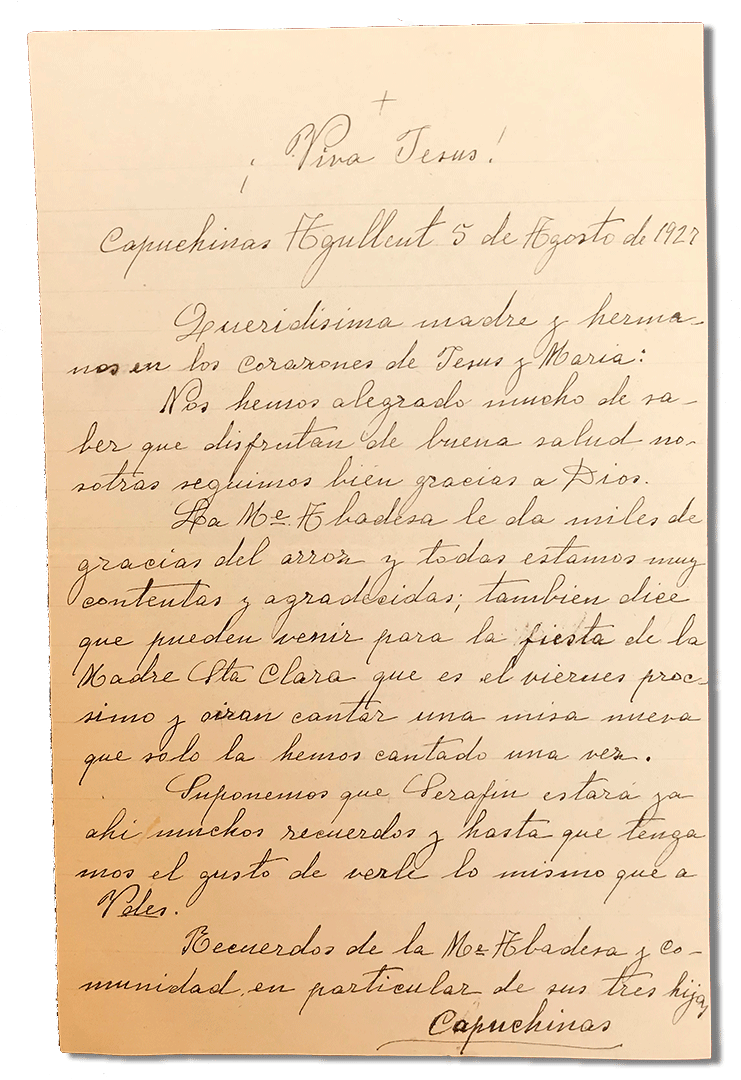 +
¡Viva Jesus!
Capuchinas Agullent 5 de Agosto de 1927
Queridisima madre y herma-
nos en los corazones de Jesus y Maria:
Nos hemos alegrado mucho de sa-
ber que disfrutan de buena salud no-
sotras seguimos bién gracias a Dios.
La Me. Abadesa le da miles de
gracias del arroz y todas estamos muy
contentas y agradecidas; tambien dice
que pueden venir para la fiesta de la
Madre Sta Clara que es el viernes proc-
simo y oiran cantar una misa nueva
que solo la hemos cantado una vez.
Suponemos que Serafin estará ya
ahi muchos recuerdos y hasta que tenga
mos el gusto de verle lo mismo que a
Vdes.
Recuerdos de la Me Abadesa y co-
munidad, en particular de sus tres hijas
Capuchinas